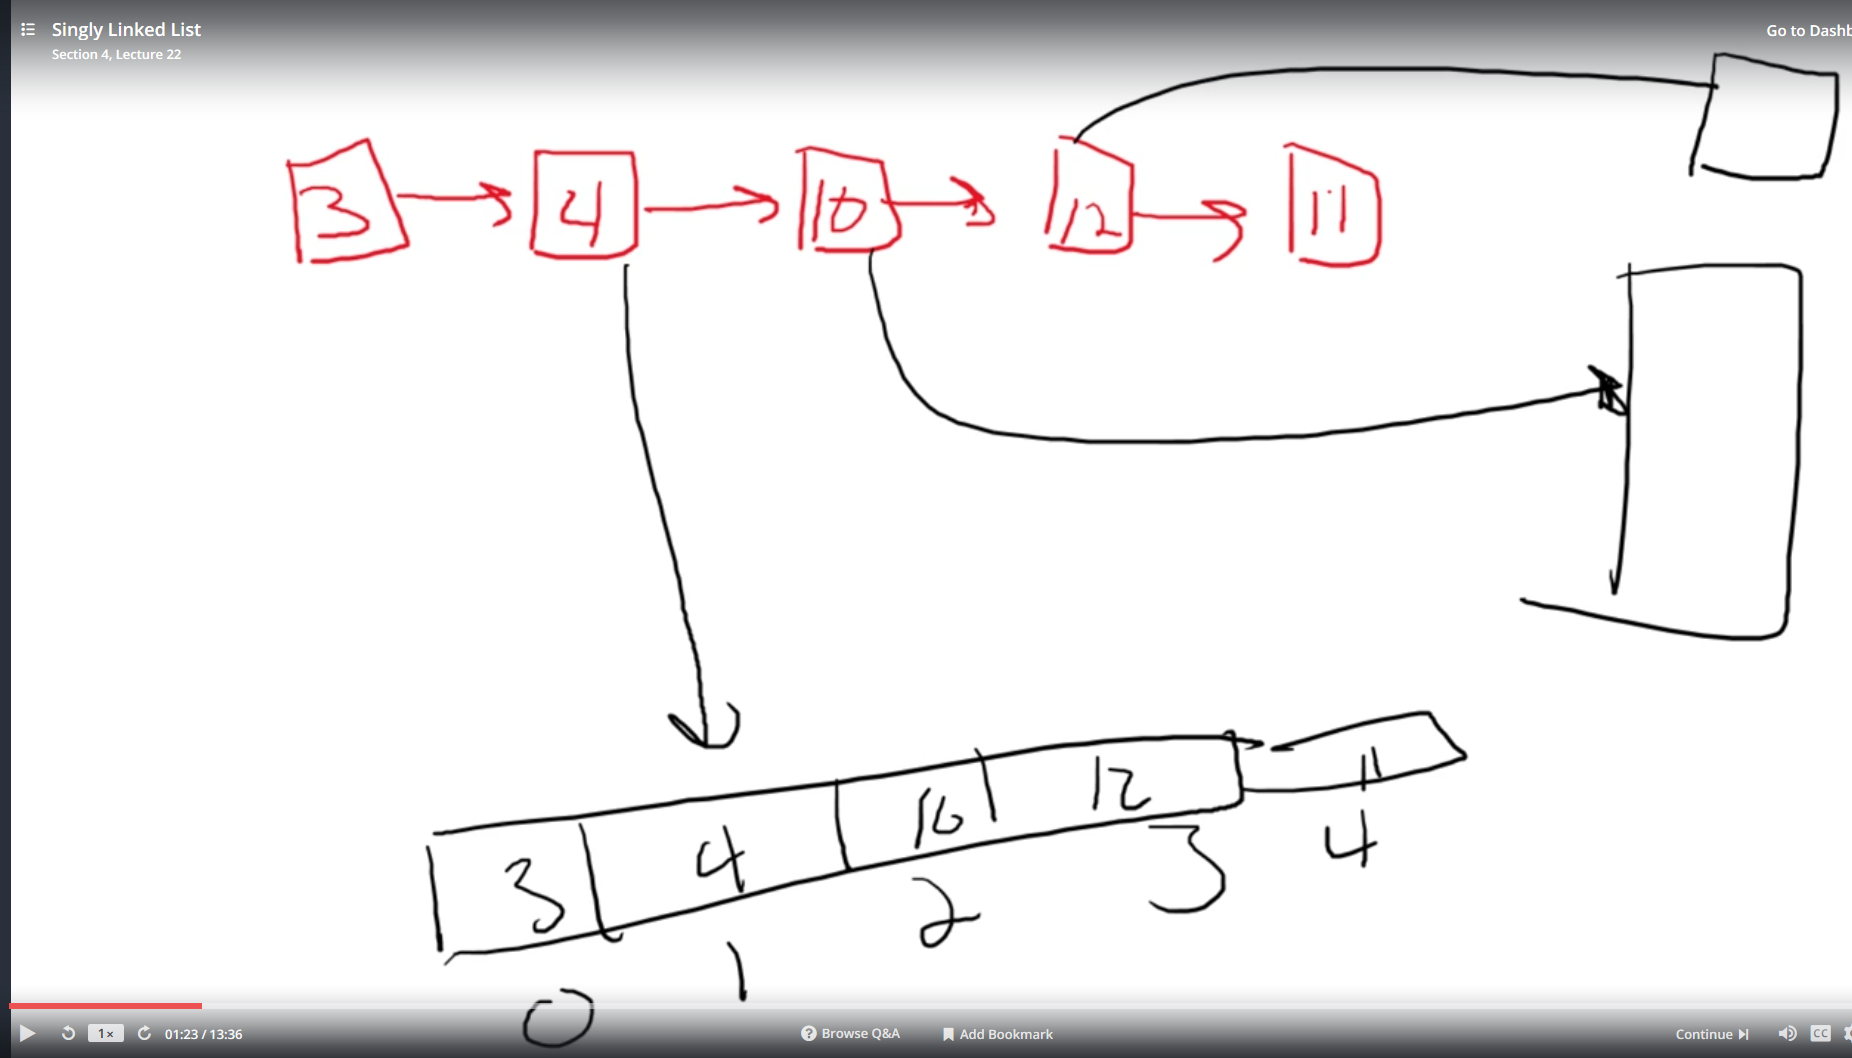 Singly Linked List
Go to Dashb
Section 4, Lecture 22
3 4 10 12 11
3 4 10 12 11
0 1 2 3 4
1x 01:23 / 13:36 ? Browse Q&A Add Bookmark Continue CC